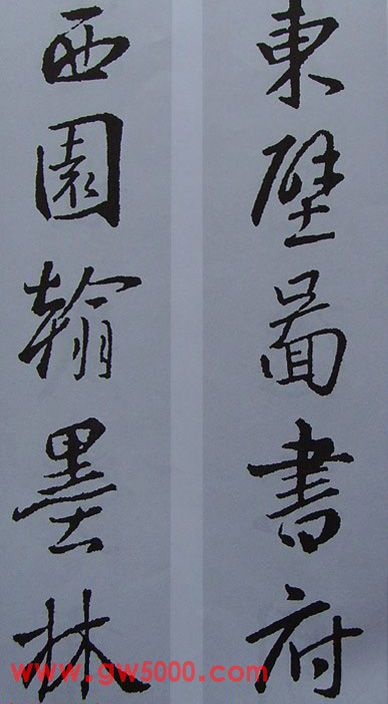 東壁啚書府
西園翰墨林
www.gw5000.com